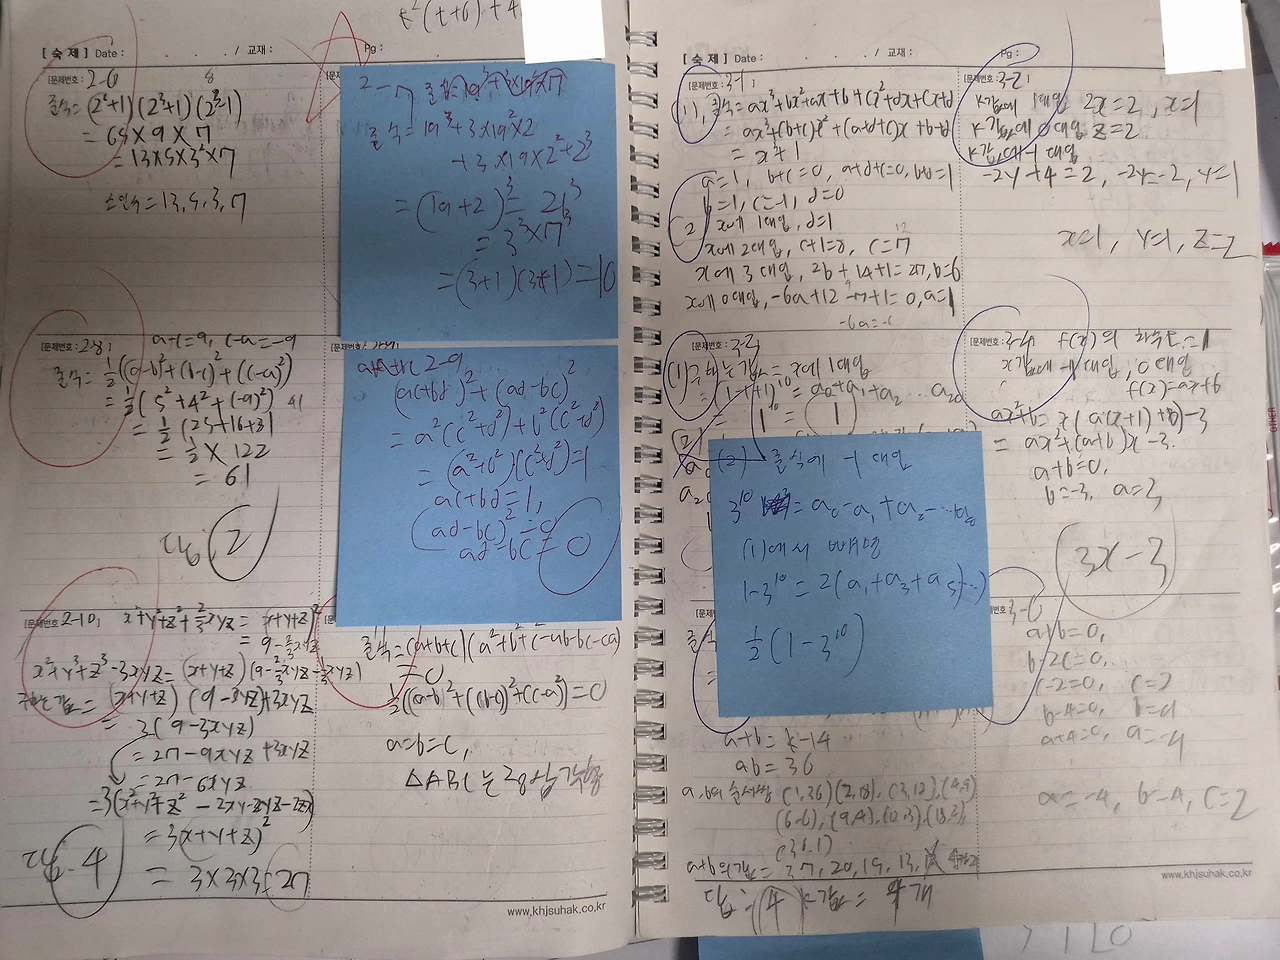 [숙 제] Date : . . . / 교재 : Pg :
[문제번호 : 2-6
준식 = (2⁶+1)(2³+1)(2³-1)
= 65×9×7
= 13×5×3²×7
소인수 = 13, 5, 3, 7
2-7
준식 = 19³+3×19²×2
+3×19×2²+2³
= (19+2)³ = 21³
= 3³×7³
= (3+1)(3+1) = 10
[문제번호 : 2-8]
a-c=9, c-a=-9
준식 = ½((a-b)²+(b-c)²+(c-a)²)
= ½(5²+4²+(-9)²)
= ½(25+16+81
= ½ × 122
= 61
답 2
2-9
(ac+bd)²+(ad-bc)²
= a²(c²+d²)+b²(c²+d²)
= (a²+b²)(c²+d²)=1
ac+bd=1,
(ad-bc)²=0
ad-bc=0
[문제번호 : 2-10]
x²+y²+z²+⅔xyz = (x+y+z)²
= 9-⅔xyz
x³+y³+z³-3xyz = (x+y+z)(9-⅔xyz-⅓xyz)
구하는 값 = (x+y+z)(9-3yz)+3xyz
= 3(9-3xyz)
= 27-9xyz+3xyz
= 27-6xyz
= 3(x²+y²+z²-2xy-2yz-2zx)
= 3(x+y+z)²
= 3×3×3=27
답 4
준식 = (a+b+c)(a²+b²+c²-ab-bc-ca)
= 0
½((a-b)²+(b-c)²+(c-a)²)=0
a=b=c,
△ABC는 정삼각형
www.khjsuhak.co.kr
[숙 제] Date : . . . / 교재 : Pg :
[문제번호 : 3-1]
(1) 준식 = ax³+bx²+ax+b+cx²+dx+cx+d
= ax³+(b+c)x²+(a+d+c)x+b+d
= x³+1
a=1, b+c=0, a+d+c=0, b+d=1
b=1, c=-1, d=0
(2) x에 1대입, d=1
x에 2대입, c+1=8, c=7
x에 3 대입, 2b+14+1=27, b=6
x에 0대입, -6a+12-7+1=0, a=1
-6a=-6
[문제번호 : 3-2]
k값에 1대입 2x=2, x=1
k값에 0대입 z=2
k값에 -1 대입
-2y+4=2, -2y=-2, y=1
x=1, y=1, z=2
[문제번호 : 3-3
(1) 구하는 값 = x에 1대입
= (1-1+1)¹⁰ = a₀+a₁+a₂...a₂₀
1¹⁰ = 1
(2) 준식에 -1 대입
3¹⁰ = a₀-a₁+a₂-...a₂₀
(1)에서 빼면
1-3¹⁰ = 2(a₁+a₃+a₅...)
½(1-3¹⁰)
[문제번호 : 3-4 f(x)의 차수는=1
x값에 -1 대입, 0 대입
f(x)=ax+b
ax²+b = x(a(x+1)+b)-3
= ax²+(a+b)x-3
a+b=0,
b=-3, a=3,
3x-3
[문제번호 :
a+b=k-14
ab=36
a,b의 순서쌍 (1,36)(2,18), (3,12), (4,9)
(6,6), (9,4), (12,3), (18,2),
(36,1)
a+b의 값 = 37, 20, 15, 13, 12
답 : 4 k값 = 4개
3-6
a+b=0,
b-2c=0,
c-2=0, c=2
b-4=0, b=4
a+4=0, a=-4
a=-4, b=4, c=2
www.khjsuhak.co.kr